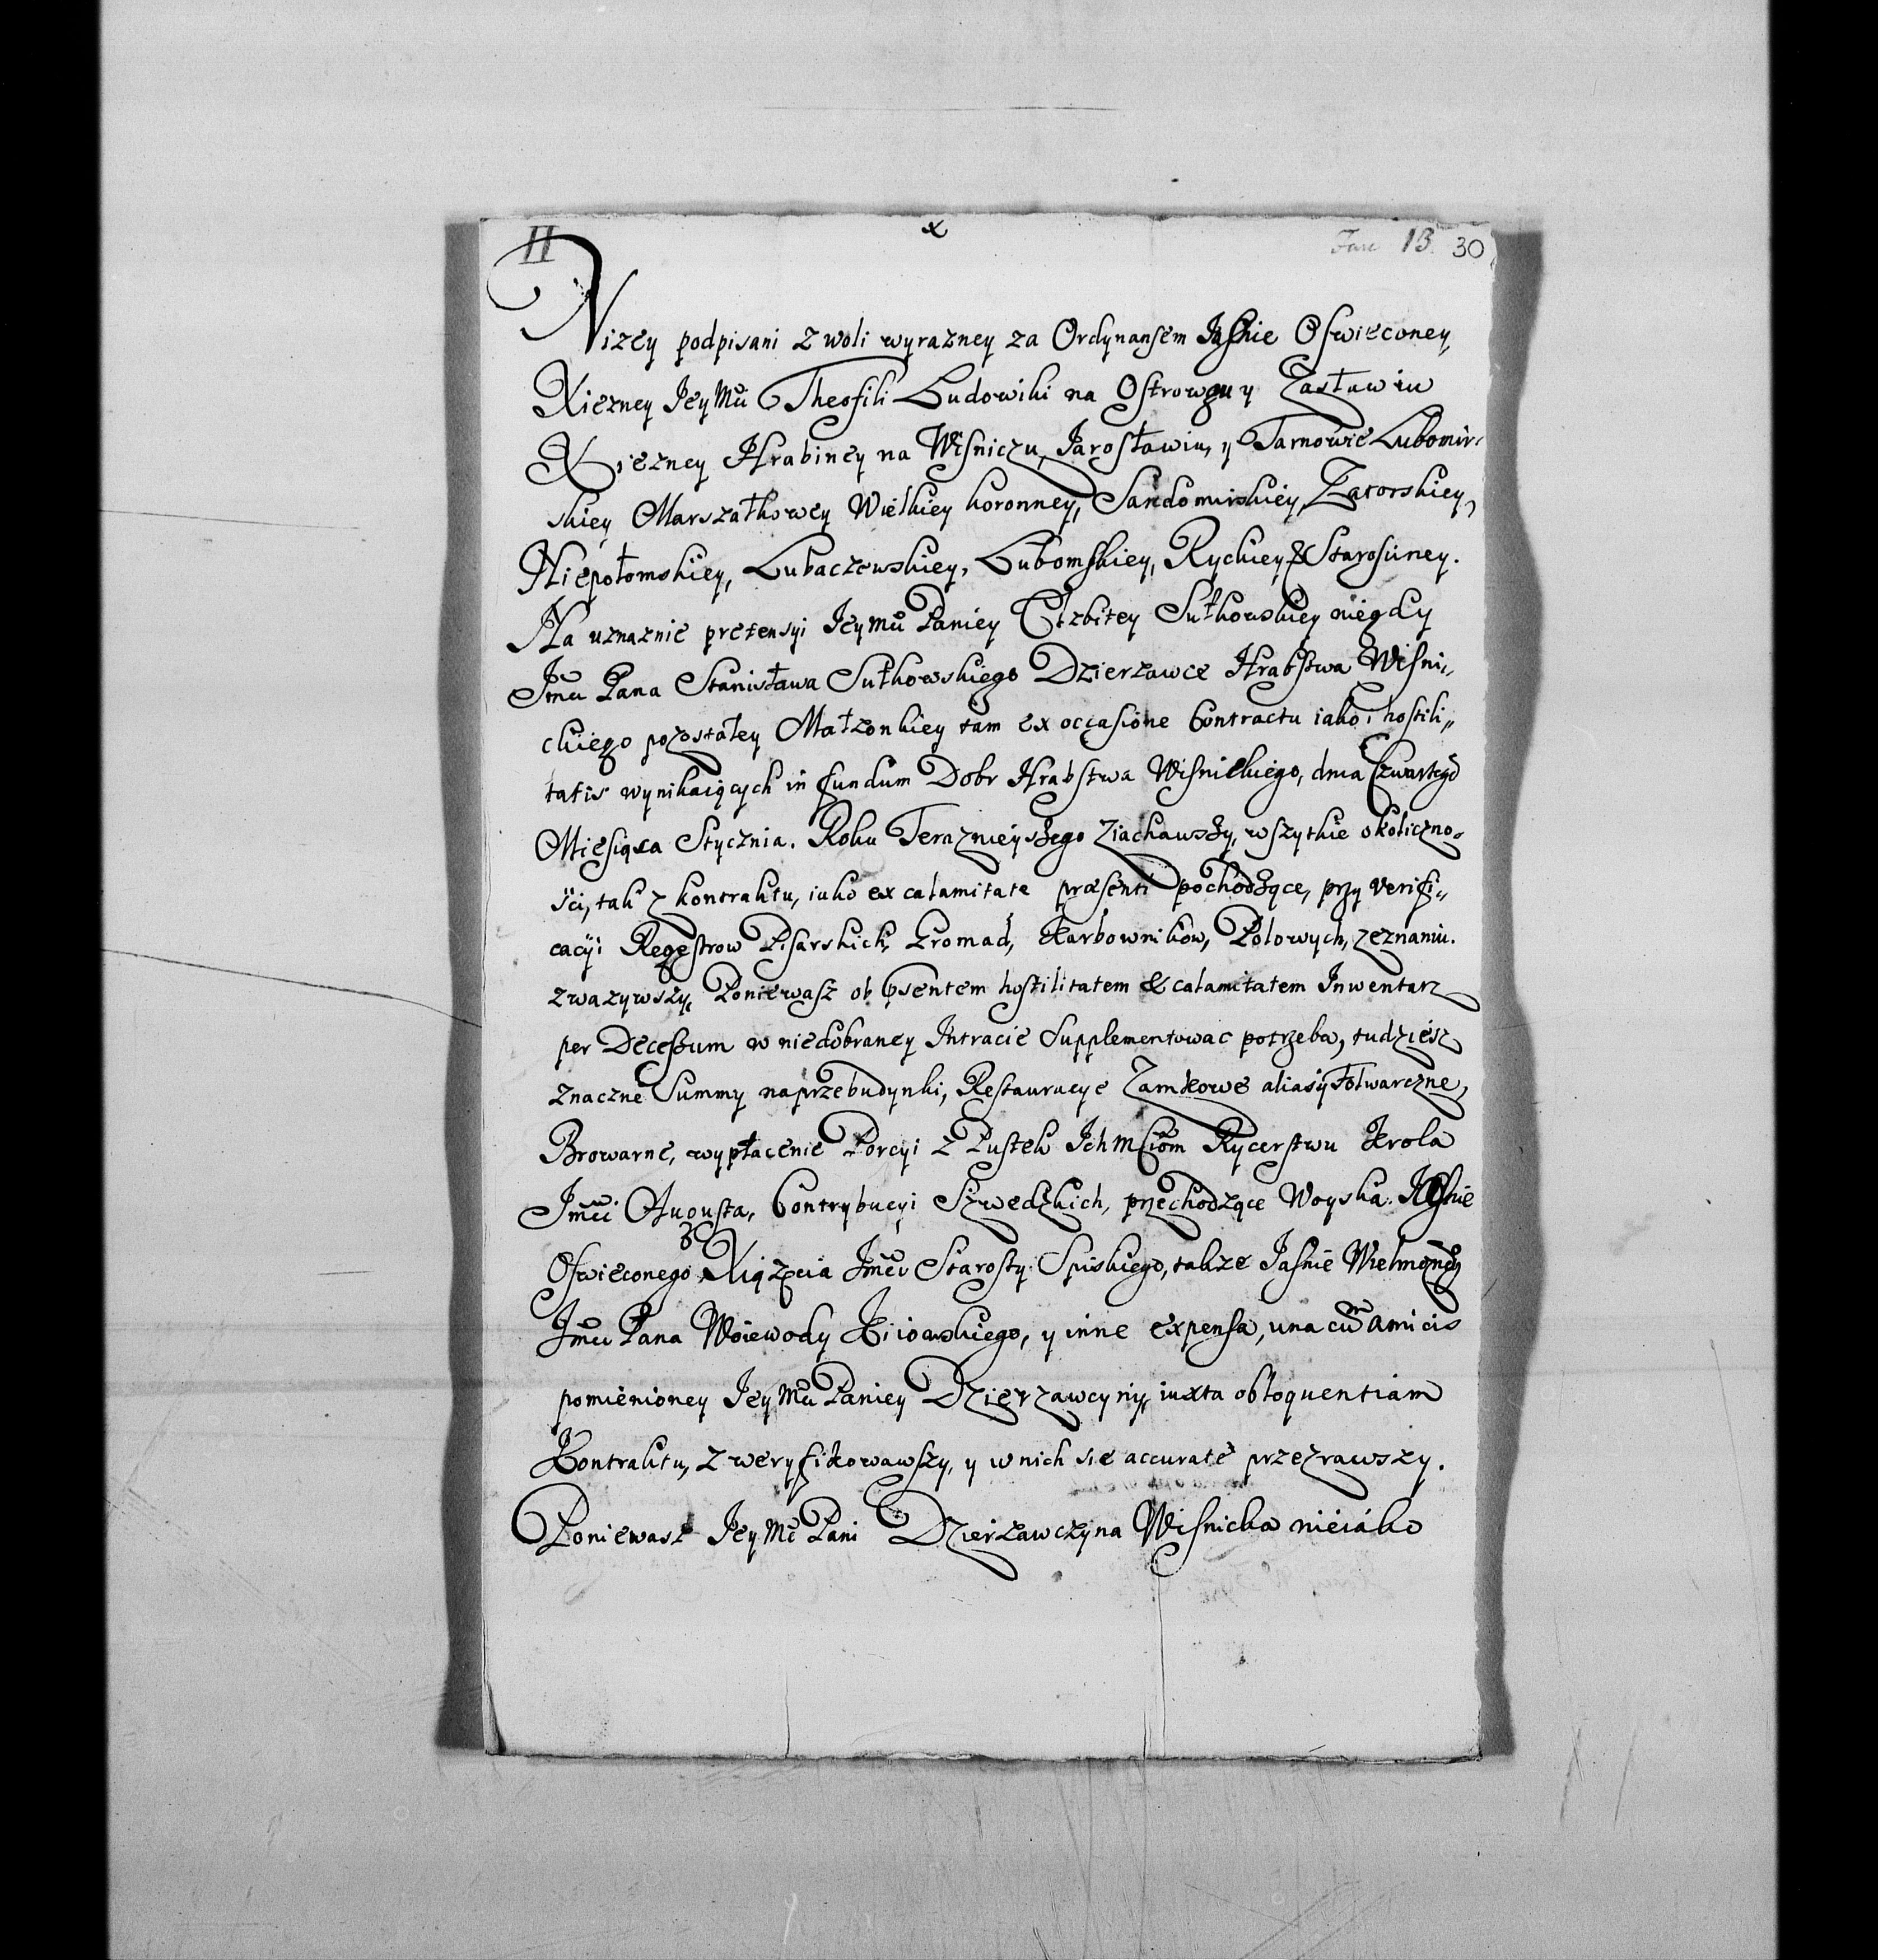 II x Fasc 13. 30
Nizey podpisani z woli wyrazney za Ordynansem Jasnie Oswieconey,
Xiezney JeyMci Theofili Ludowiki na Ostrowgu y Zasławiu
Xiezney Hrabiney na Wisniczu, Jarosławiu, y Tarnowie Lubomir-
skiey Marszałkowey Wielkiey koronney, Sandomirskiey, Zatorskiey,
Niepołomskiey, Lubaczewskiey, Lubomskiey, Ryckiey & Starosciney.
Na uznaznie pretensyi Jeymci Paniey Elzbitey Sułkowskiey niegdy
Jmci Pana Stanisława Sułkowskiego Dzierzawce Hrabstwa Wisni-
ckiego pozostałey Małzonkiey tam ex occasione Contractu iako i hostili-
tatis wynikaiących in fundum Dobr Hrabstwa Wisnickiego, dnia Czwartego
Miesiąca Stycznia. Roku Teraznieyszego ziachawszy, wszytkie okoliczno-
sci, tak z kontraktu, iako ex calamitate præsenti pochodzące, przy verifi-
cacyi Regestrow Pisarskich, Gromad, Karbownikow, Polowych, zeznaniu.
zwazywszy, Poniewasz ob Psentem hostilitatem & calamitatem Inwentarz
per Decessum w niedobraney Intracie Supplementowac potrzeba, tudziesz
znaczne Summy na przebudynki, Restauracye Zamkowe alias y Folwarczne,
Browarne, wypłacenie Porcyi z Pustek Ichmsciom Rycerstwu Krola
Jmci Augusta, Contrybucyi Szwedzkich, przechodzące Woyska. Jasnie
Oswieconego Xiązecia Jmci Starosty Spiskiego, takze Jasnie Wielmoznego
Jmci Pana Woiewody Kiiowskiego, y inne expensa, una cum amicis
pomienioney JeyMci Paniey Dzierzawcyniy, iuxta obloquentiam
Kontraktu, zweryfikowawszy, y w nich sie accurate przezrawszy.
Poniewasz JeyMc Pani Dzierzawczyna Wisnicka nieiako